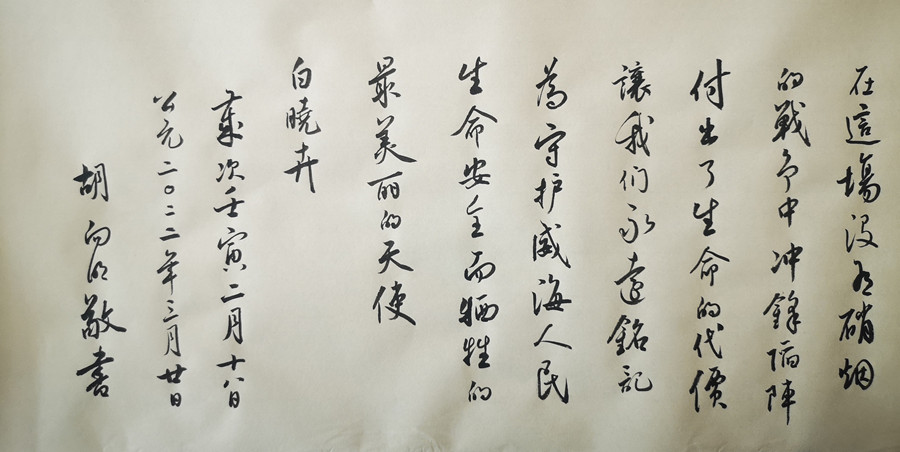 在這場没有硝烟
的戰争中冲鋒陷陣
付出了生命的代價
讓我们永遠銘記
為守护威海人民
生命安全而牺牲的
最美丽的天使
白曉卉
歲次壬寅二月十八日
公元二〇二二年三月廿日
胡向明敬書